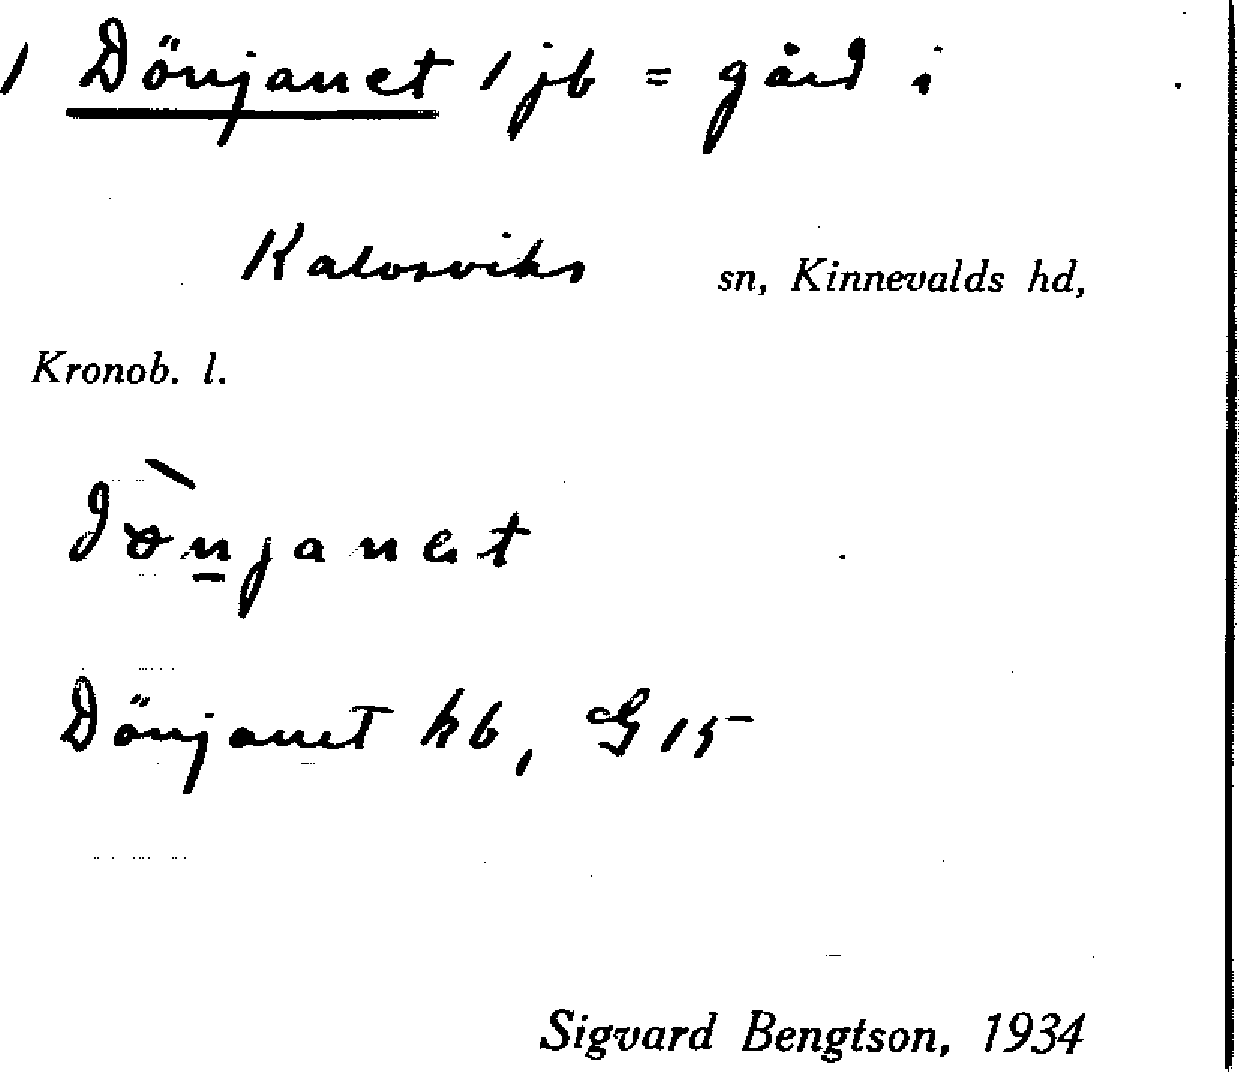 / Dönjanet / jb = gård i
Kalvsviks sn, Kinnevalds hd,
Kronob. l.
Dönjanet kb, G 15
Sigvard Bengtson, 1934